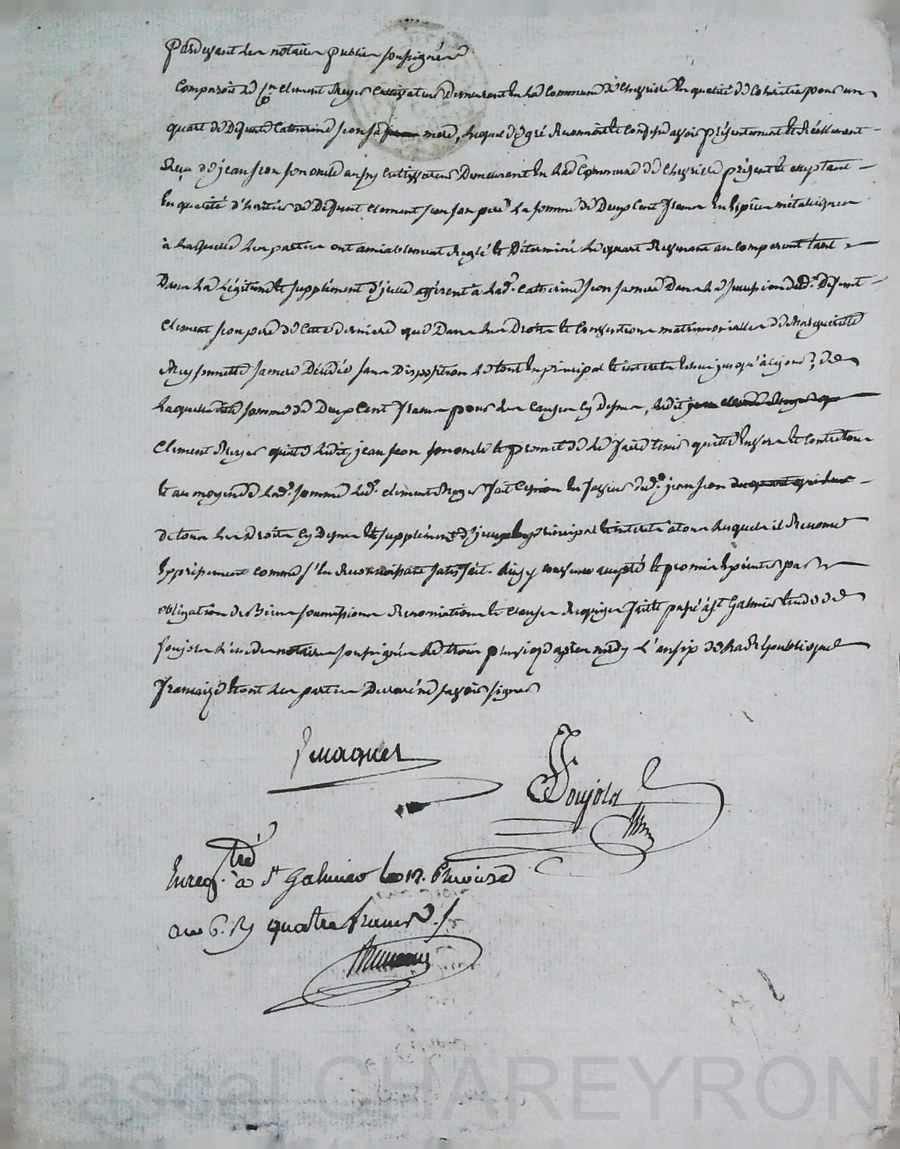 Pardevant les notaires publics soussignés
Comparoit le cn Clement Reyer cultivateur demeurant en la commune de Chevrieres en qualité de cohéritier pour un
quart de défunte Catherine Jeon sa mere, lequel de gré a reconnu et confessé avoir présentement et réellement
Reçu de jean Jeon son oncle aussy cultivateur demeurant en lad. commune de Chevrieres présent et acceptant
En qualité d'héritier de défunt Clement Jeon son pere la somme de Deux Cent francs en espèces métalliques
à laquelle les parties ont amiablement Reglé et Déterminé le quart Revenant au comparant tant
Dans la légitime et supplément d'icelle afférent à lad. Catherine Jeon sa mere Dans la succession dud. Défunt
Clement Jeon pere de cette derniere que Dans les Droits et Conventions matrimonialles de Marguerite
sa mere Décédée sans Disposition le tout en principal et interets jusqu'à ce jour, de
Laquelle somme de Deux Cent francs pour les causes cy dessus, ledit
Clement Reyer quitte ledit jean Jeon son oncle et promet de le faire tenir quitte envers et contre tous
Et au moyen de lad. somme led. Clement Reyer fait cession en faveur dud. jean Jeon
De tous les Droits cy dessus et supplément d'iceux en principal et interets a tous lesquels il Renonce
Expressement comme s'en Reconnoissant satisfait. ainsy convenu accepté et promis exécuter par
obligation de Biens soumissions Renonciations et clauses Requises fait et passé à St Galmier etude de
Soujols l'un des notaires soussignés le trois pluviose après midy l'an six de la République
française et ont les parties Declaré ne savoir signer
Soujols
Enregtré à St Galmier le 12. Pluviose
an 6. Rç quatre francs
Pascal CHAREYRON